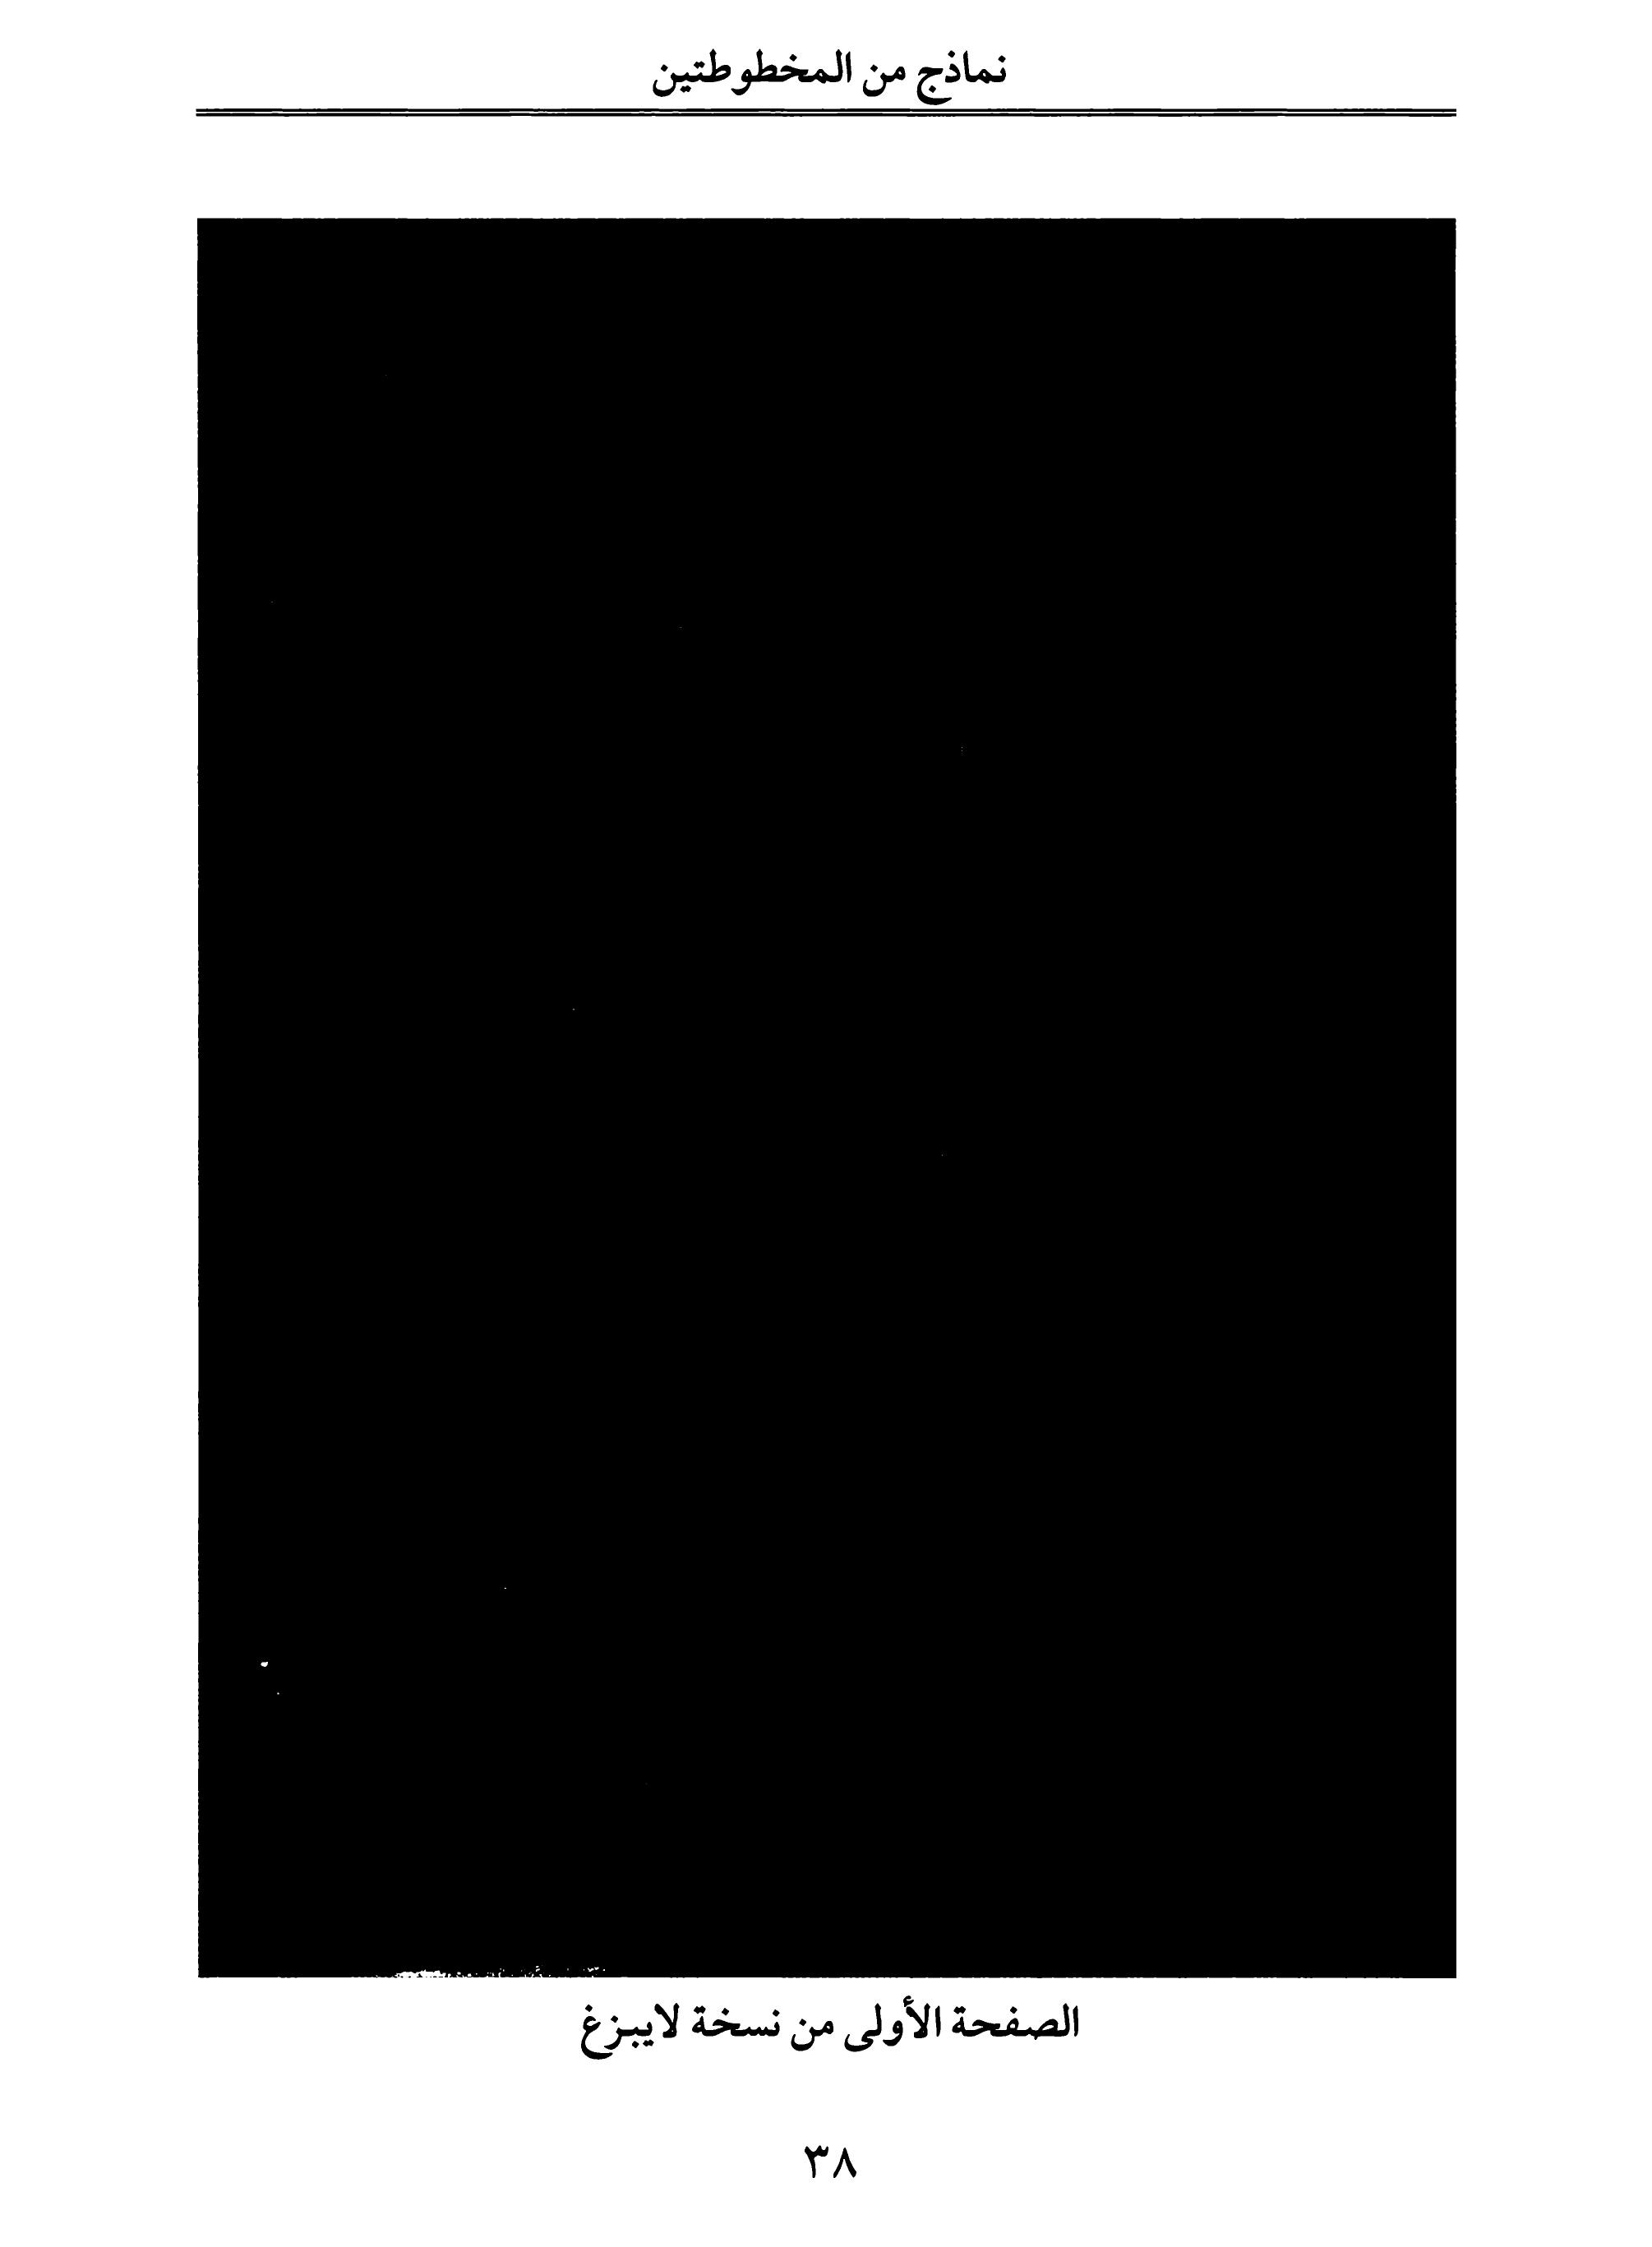 نماذج من المخطوطتين
الصفحة الأولى من نسخة لايبزغ
٣٨